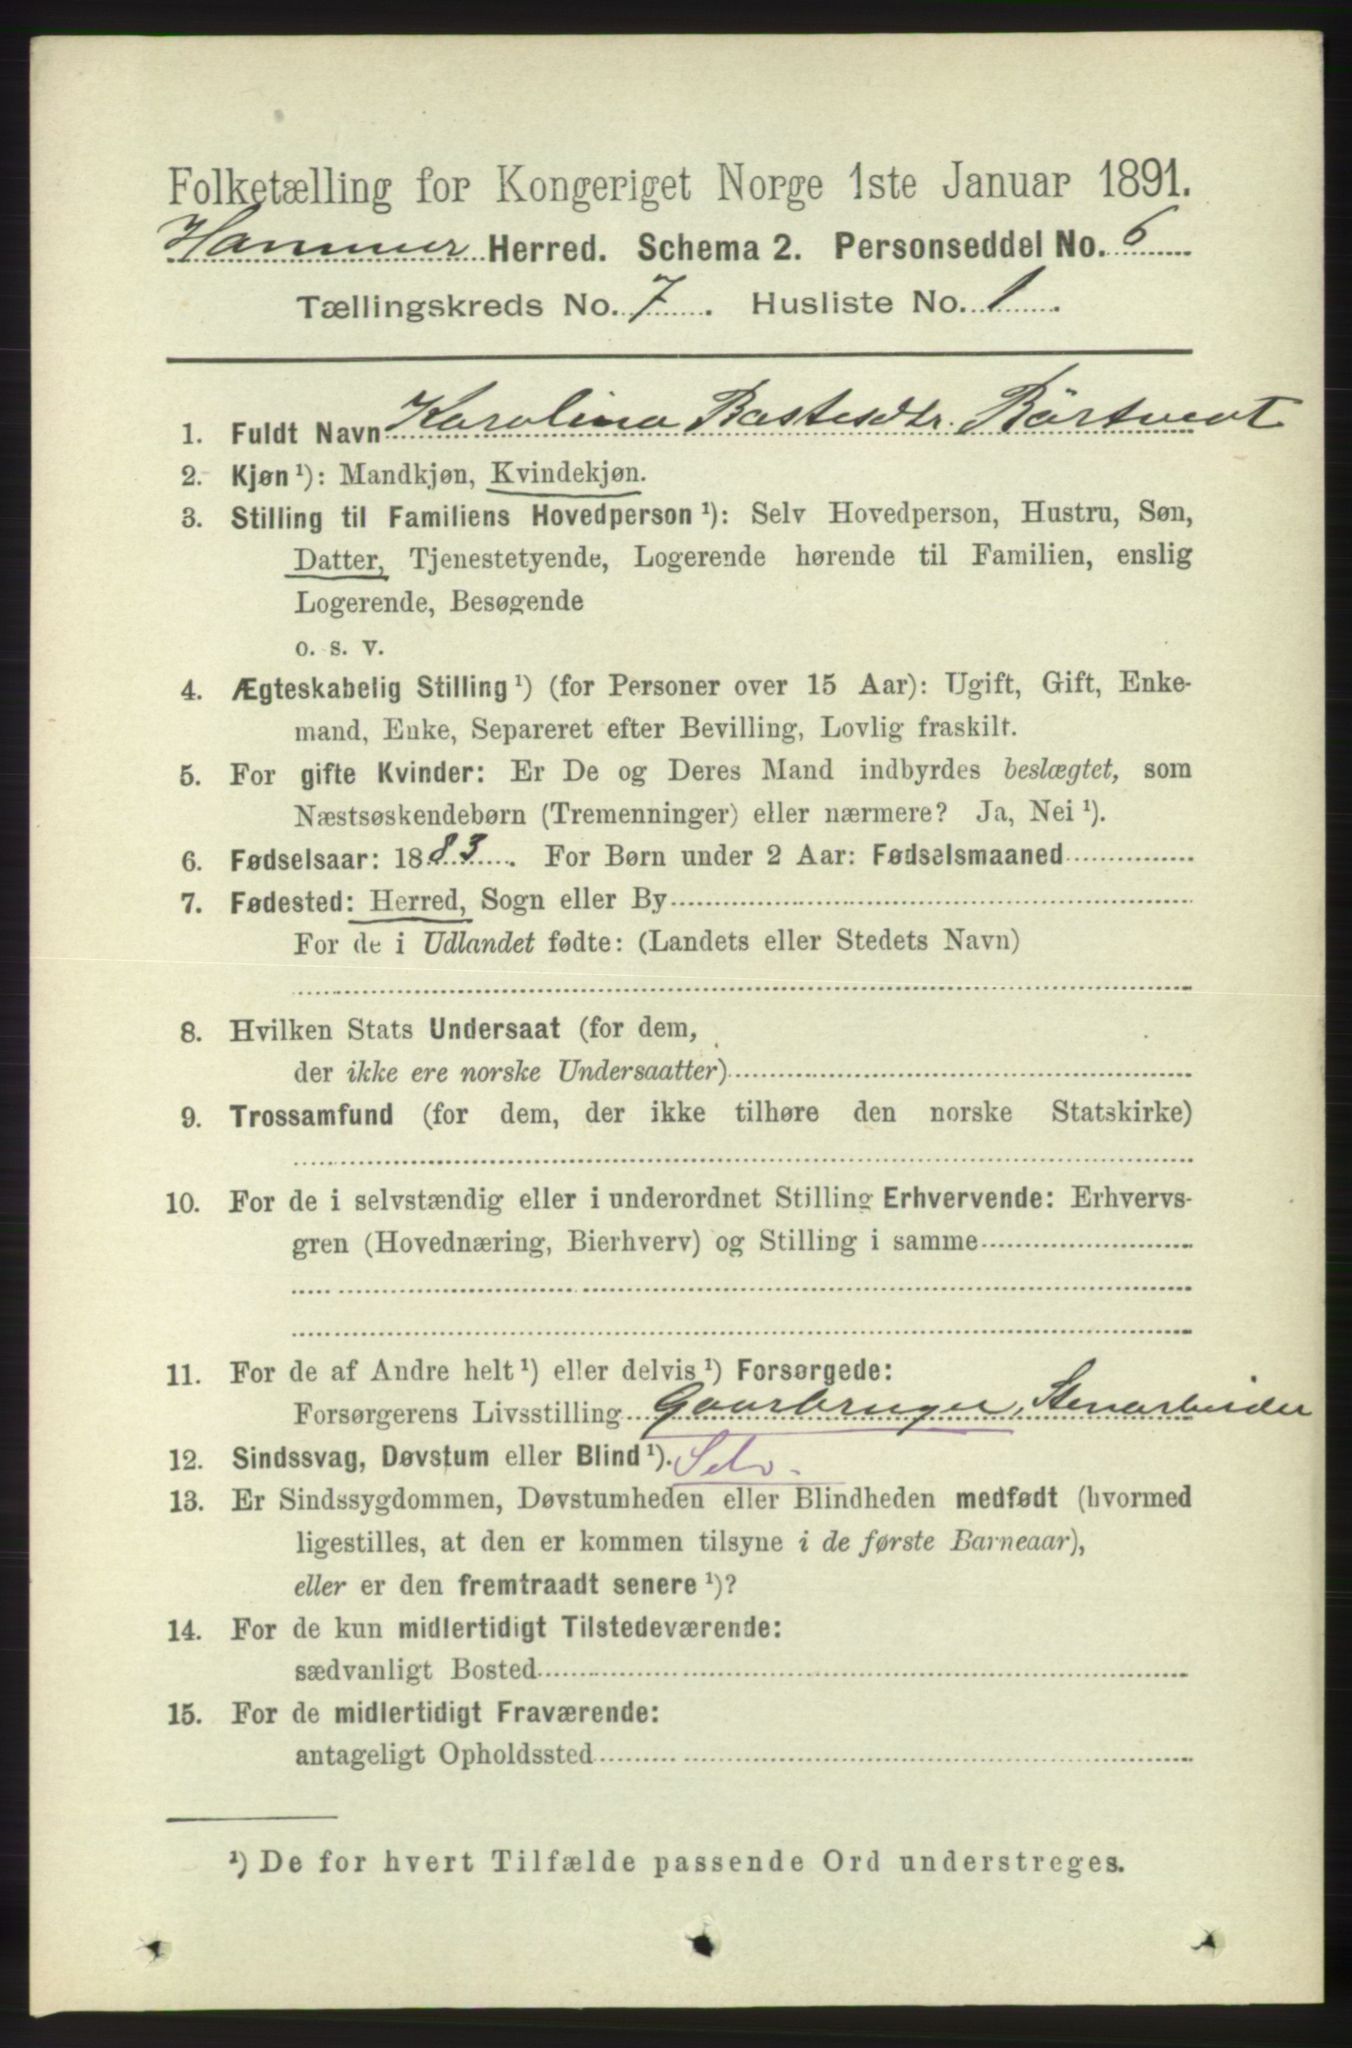 Folketælling for Kongeriget Norge 1ste Januar 1891.
Hammer Herred. Schema 2. Personseddel No. 6
Tællingskreds No. 7. Husliste No. 1.
1. Fuldt Navn Karolina Bastesdtr. Börtveot
2. Kjøn ¹): Mandkjøn, Kvindekjøn.
3. Stilling til Familiens Hovedperson ¹): Selv Hovedperson, Hustru, Søn,
Datter, Tjenestetyende, Logerende hørende til Familien, enslig
Logerende, Besøgende
o. s. v.
4. Ægteskabelig Stilling ¹) (for Personer over 15 Aar): Ugift, Gift, Enke-
mand, Enke, Separeret efter Bevilling, Lovlig fraskilt.
5. For gifte Kvinder: Er De og Deres Mand indbyrdes beslægtet, som
Næstsøskendebørn (Tremenninger) eller nærmere? Ja, Nei ¹).
6. Fødselsaar: 1883. For Børn under 2 Aar: Fødselsmaaned
7. Fødested: Herred, Sogn eller By
For de i Udlandet fødte: (Landets eller Stedets Navn)
8. Hvilken Stats Undersaat (for dem,
der ikke ere norske Undersaatter)
9. Trossamfund (for dem, der ikke tilhøre den norske Statskirke)
10. For de i selvstændig eller i underordnet Stilling Erhvervende: Erhvervs-
gren (Hovednæring, Bierhverv) og Stilling i samme
11. For de af Andre helt ¹) eller delvis ¹) Forsørgede:
Forsørgerens Livsstilling Gaarbruger, Stenarbeider
12. Sindssvag, Døvstum eller Blind ¹). Selv.
13. Er Sindssygdommen, Døvstumheden eller Blindheden medfødt (hvormed
ligestilles, at den er kommen tilsyne i de første Barneaar),
eller er den fremtraadt senere ¹)?
14. For de kun midlertidigt Tilstedeværende:
sædvanligt Bosted
15. For de midlertidigt Fraværende:
antageligt Opholdssted
¹) De for hvert Tilfælde passende Ord understreges.